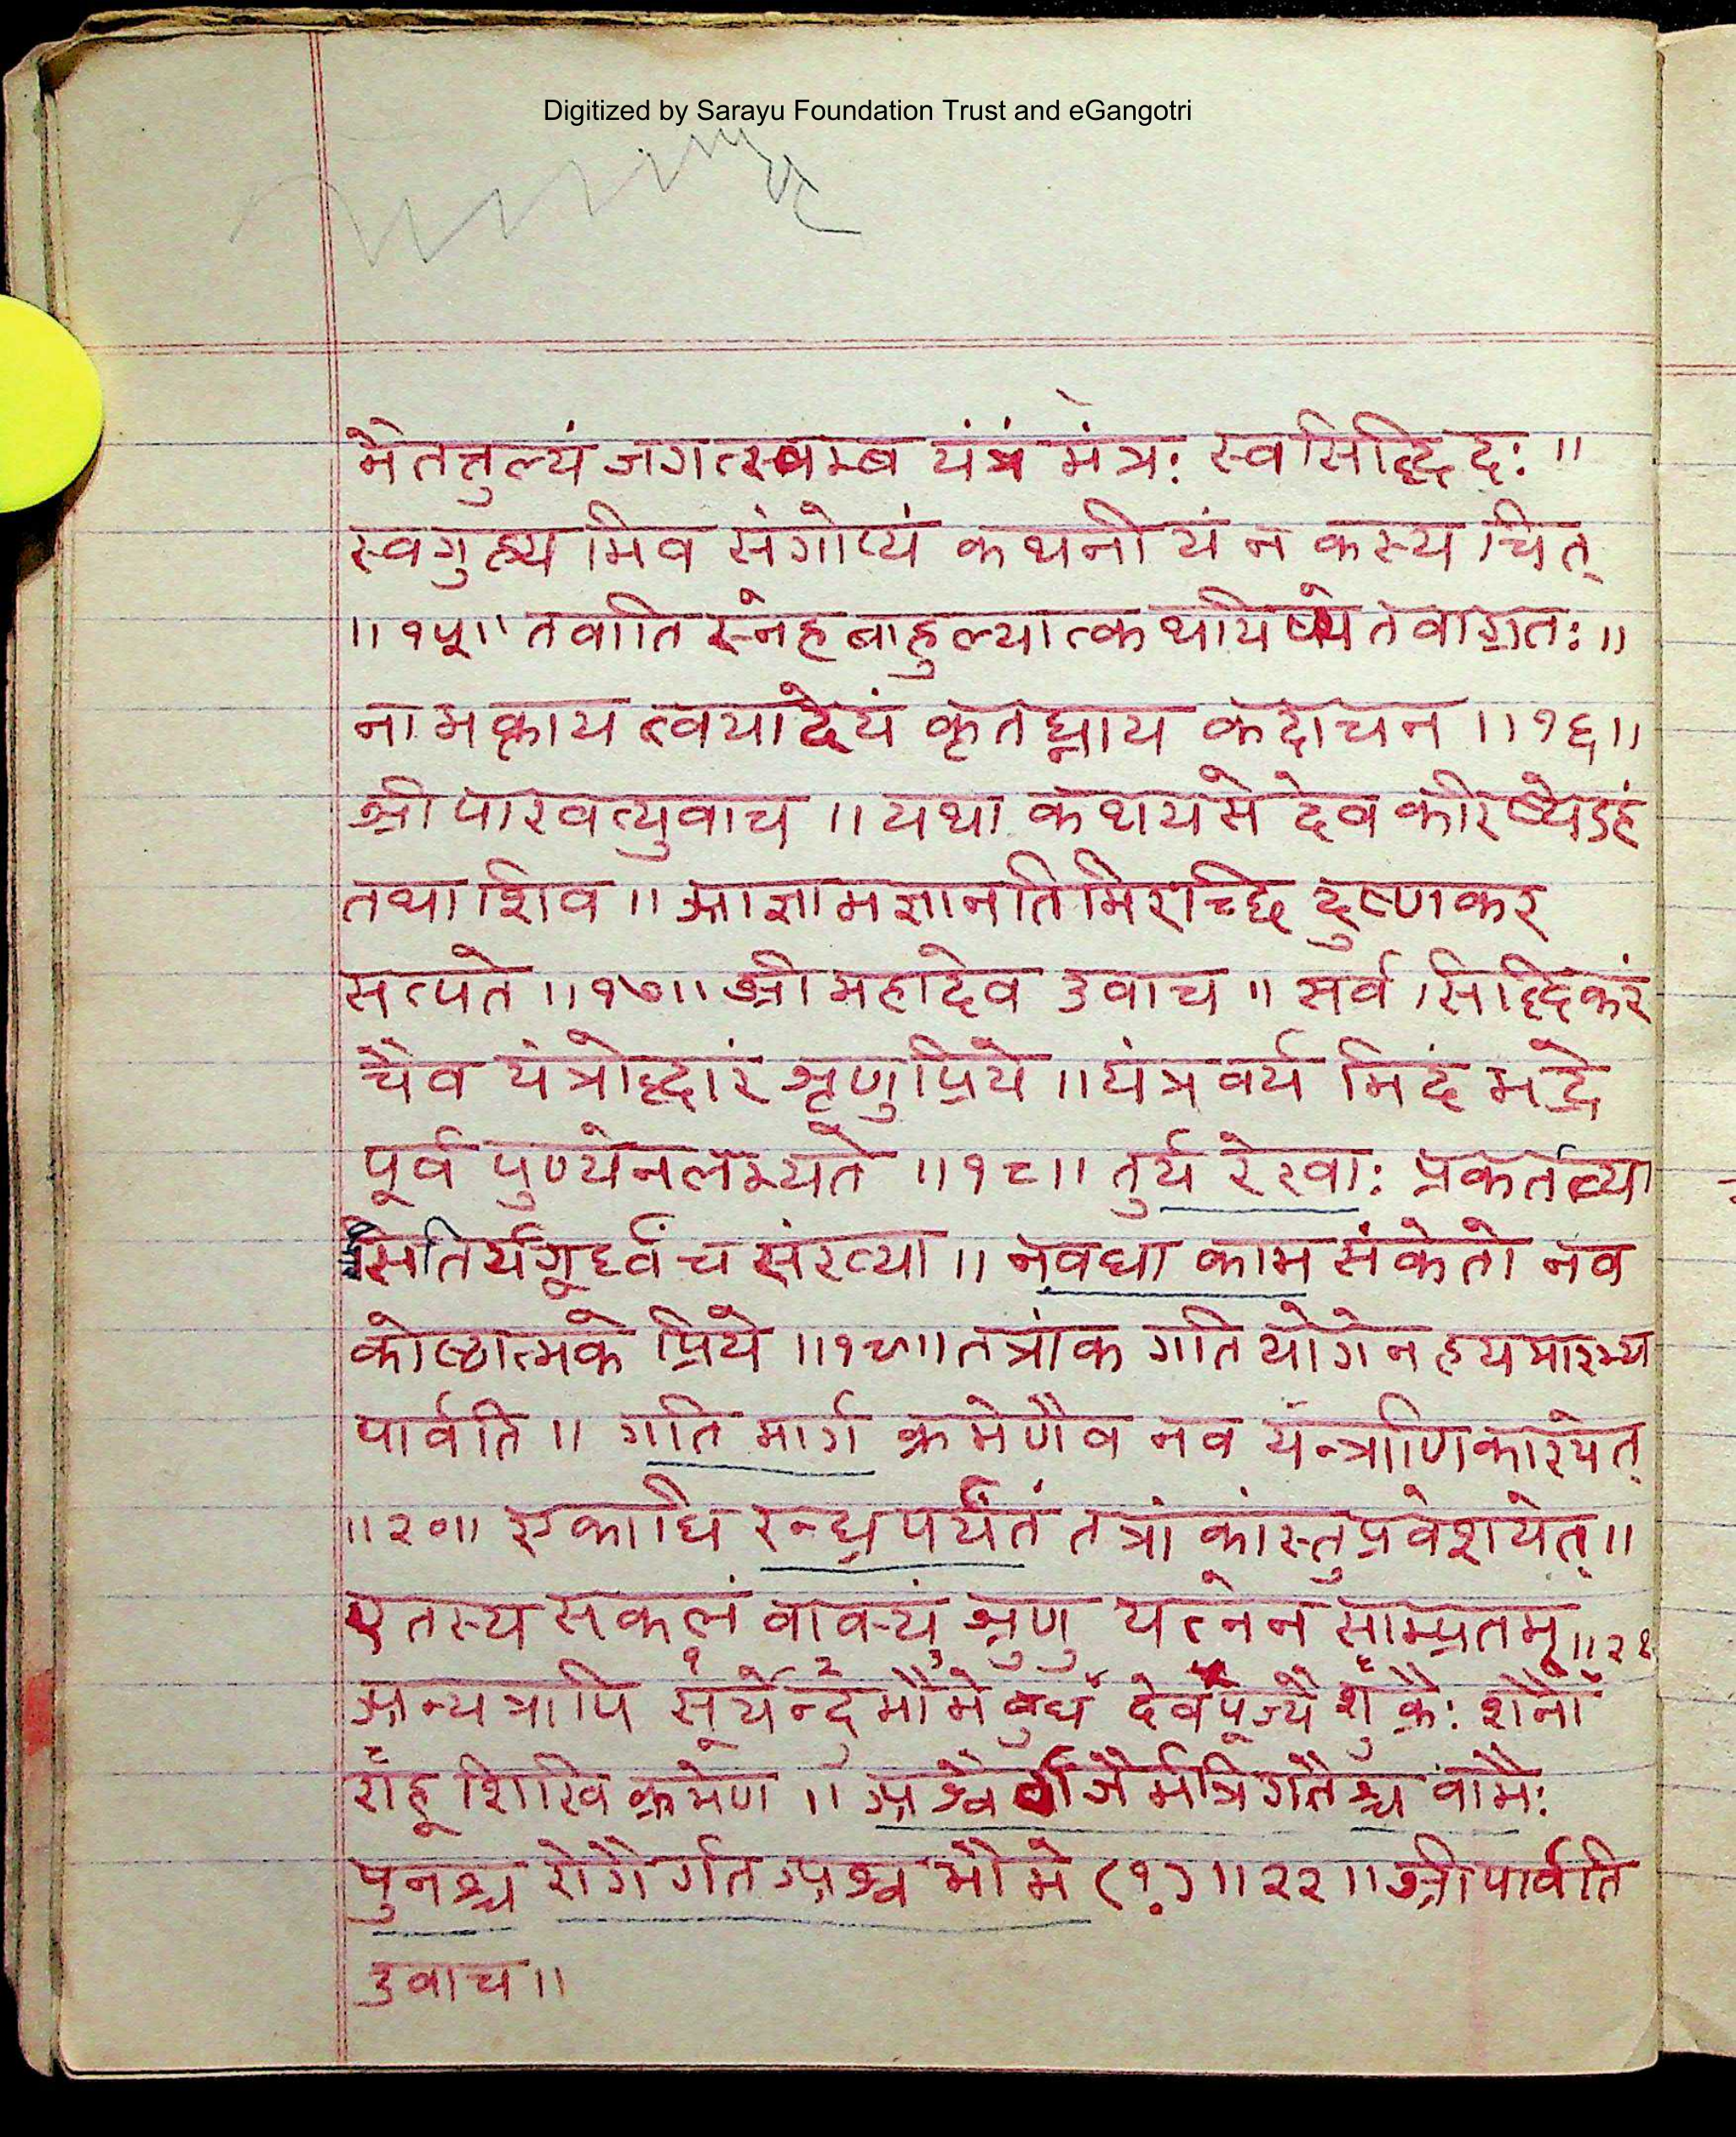 Digitized by Sarayu Foundation Trust and eGangotri
मेतत्तुल्यं जगत्स्वम्ब यंत्रं मंत्रः स्वसिद्धिदः ॥
स्वगुह्यमिव संगोप्यं कथनीयं न कस्यचित्
॥१५॥ तवाति स्नेह बाहुल्यात्कथयिष्ये तवाग्रतः ॥
नाभक्ताय त्वयादेयं कृतघ्नाय कदाचन ॥१६॥
श्री पारवत्युवाच ॥ यथा कथयसे देव करिष्येऽहं
तथा शिव ॥ आज्ञामज्ञानतिमिराच्छि दुष्णकर
सत्पते ॥१७॥ श्री महादेव उवाच ॥ सर्व सिद्धिकरं
चैव यंत्रोद्धारं श्रृणु प्रिये ॥ यंत्रवर्य मिदं भद्रे
पूर्व पुण्येन लभ्यते ॥१८॥ तुर्य रेखाः प्रकर्तव्या
सतिर्यगूर्ध्वं च संख्या ॥ नवधा काम संकेतो नव
कोष्ठात्मके प्रिये ॥१९॥ तत्रांक गति योगेन हयमारभ्य
पार्वति ॥ गति मार्ग क्रमेणैव नव यन्त्राणि कारयेत्
॥२०॥ एकाधि रन्ध्र पर्यंतं तत्रांकांस्तु प्रवेशयेत् ॥
एतस्य सकलं वाक्यं श्रृणु यत्नेन साम्प्रतम् ॥२१
अन्यत्रापि सूर्येन्दु भौमे बुध देवपूज्यै शुक्रैः शनौ
राहू शिखि क्रमेण ॥ अश्वै र्गजैर्मत्रिगतैश्च वामैः
पुनश्च रोगैर्गत अश्व भौमे (१) ॥२२॥ श्री पार्वति
उवाच ॥